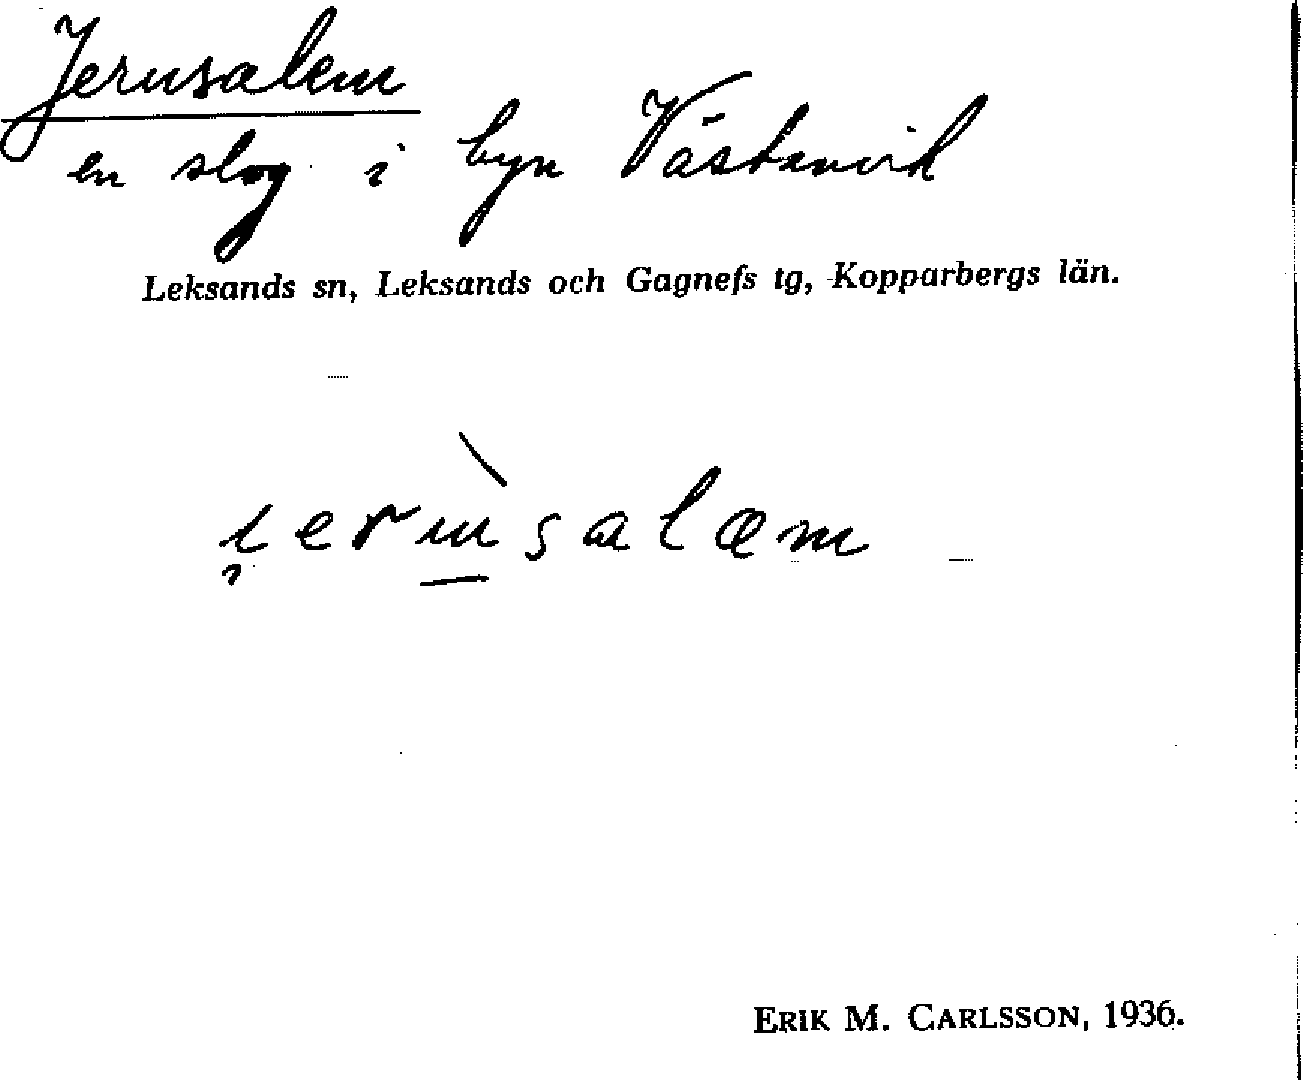 Jerusalem
en slog i byn Västanvik
Leksands sn, Leksands och Gagnefs tg, Kopparbergs län.
ERIK M. CARLSSON, 1936.